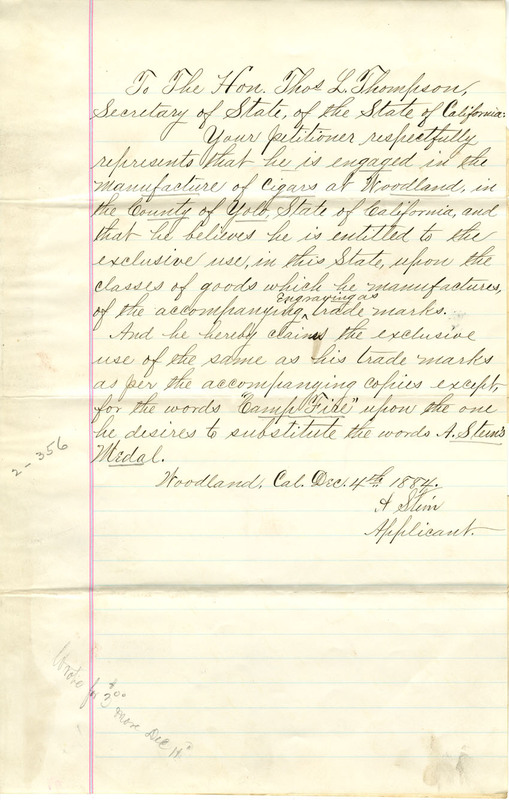 To The Hon. Thos L. Thompson,
Secretary of State, of the State of California:
Your petitioner respectfully
represents that he is engaged in the
manufacture of cigars at Woodland, in
the County of Yolo, State of California, and
that he believes he is entitled to the
exclusive use, in this State, upon the
classes of goods which he manufactures,
engraving as
of the accompanying trade marks.
And he hereby claims the exclusive
use of the same as his trade marks
as per the accompanying copies except
for the words "Camp Fire" upon the one
he desires to substitute the words A. Stein's
Medal.
Woodland, Cal. Dec. 4th 1884.
A Stein
Applicant.
2-356
Wrote for $3.00 more Dec 11"